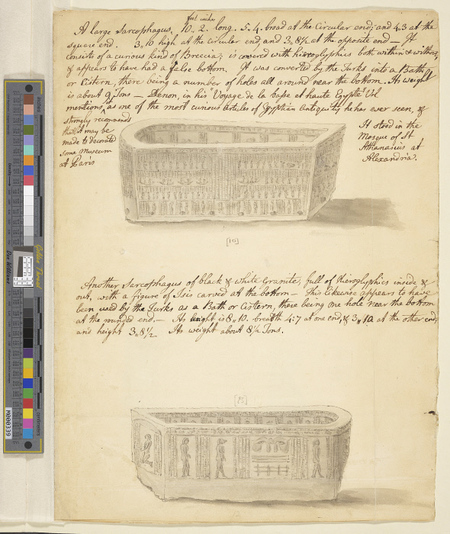 feet inches
A large Sarcophagus, 10. 2. long. 5. 4. broad at the Circular end, and 4.3 at the
square end. 3.10 high at the Circular end and 3. 8½ at the opposite end — It
consists of a curious kind of Breccia, is covered with hieroglyphics both within & without,
& appears to have had a false bottom. It was converted by the Turks into a Bath
or Cistern, there being a number of holes all around near the bottom. Its weight
is about 9 Tons — Denon, in his Voyage de la haute Egypte Vol
mentions as one of the most curious Articles of Egyptian Antiquity he has ever seen, &
strongly recommends
that it may be
made to decorate
some Museum
at Paris
It stood in the
Mosque of St.
Athanasius at
Alexandria.
[10]
Another Sarcophagus of black & white Granite, full of Hieroglyphics inside &
out, with a figure of Isis carved at the bottom — This likewise appears to have
been used by the Turks as a Bath or Cistern, there being one hole near the bottom
at the rounded end. — Its length is 8.10. breadth 4:7 at one end, & 3.10 at the other end,
and height 3. 8½ Its weight about 8½ Tons.
[11]
M000339